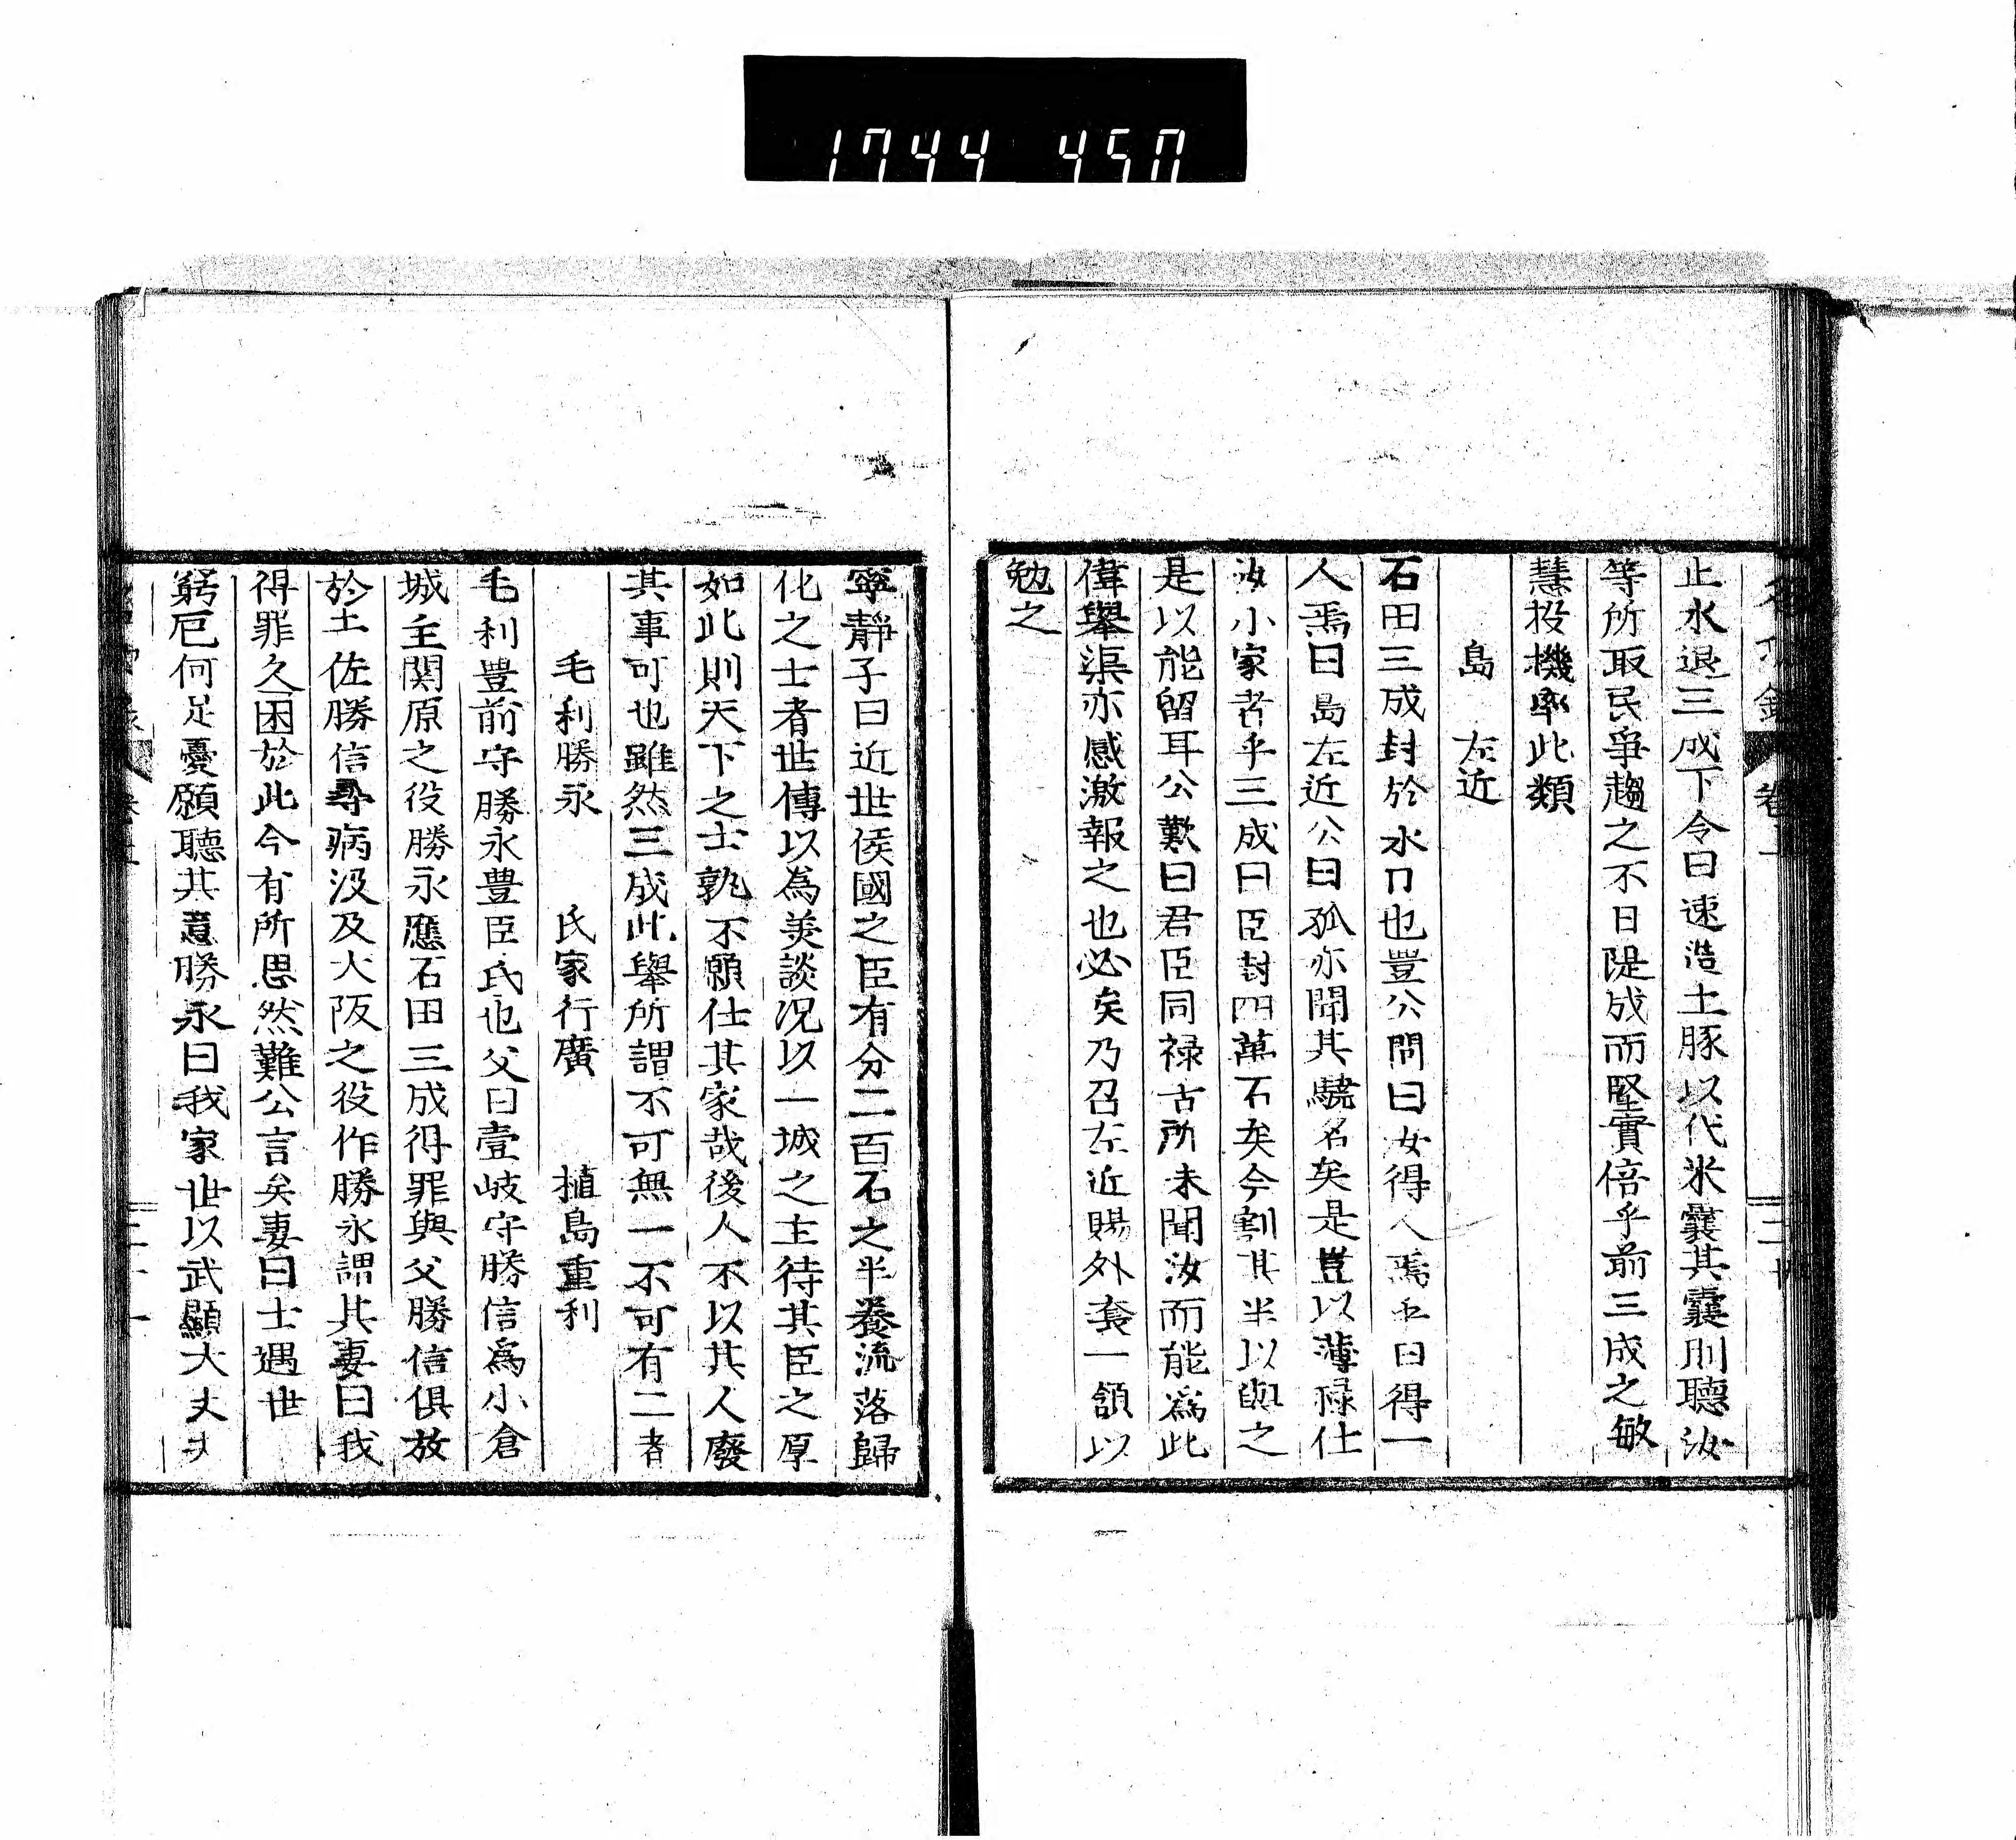 1744 450
止水退三成下令曰速造土豚以代米囊其囊則聽汝
等所取民爭趨之不日隄成而堅實倍乎前三成之敏
慧投機率此類
島 左近
石田三成封於水口也豊公問曰女得人焉乎曰得一
人焉曰島左近公曰孤亦聞其驍名矣是豈以薄祿仕
汝小家者乎三成曰臣封四萬石矣今割其半以與之
是以能留耳公歎曰君臣同祿古所未聞汝而能爲此
偉舉渠亦感激報之也必矣乃召左近賜外套一領以
勉之
寧靜子曰近世侯國之臣有分二百石之半養流落歸
化之士者世傳以為美談況以一城之主待其臣之厚
如此則天下之士孰不願仕其家哉後人不以其人廢
其事可也雖然三成此舉所謂不可無一不可有二者
毛利勝永 氏家行廣 植島重利
毛利豊前守勝永豊臣氏也父曰壹岐守勝信爲小倉
城主関原之役勝永應石田三成得罪與父勝信俱放
於土佐勝信尋病沒及大阪之役作勝永謂其妻曰我
得罪久困於此今有所思然難公言矣妻曰士遇世
窮厄何足憂願聽其意勝永曰我家世以武顯大丈夫